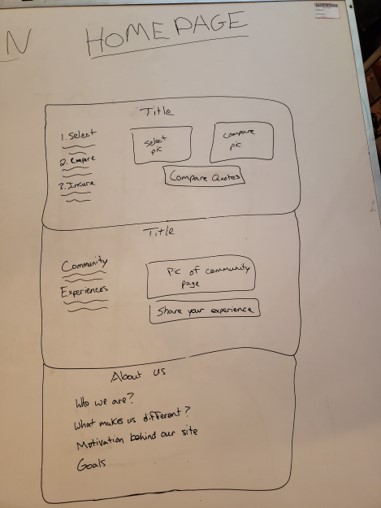 N HOMEPAGE
Title
1. Select
2. Compare
3. Insure
Select
pic
Compare
pic
Compare Quotes
Title
Community
Experiences
Pic of community
page
Share your experience
About us
Who we are?
What makes us different?
Motivation behind our site
Goals